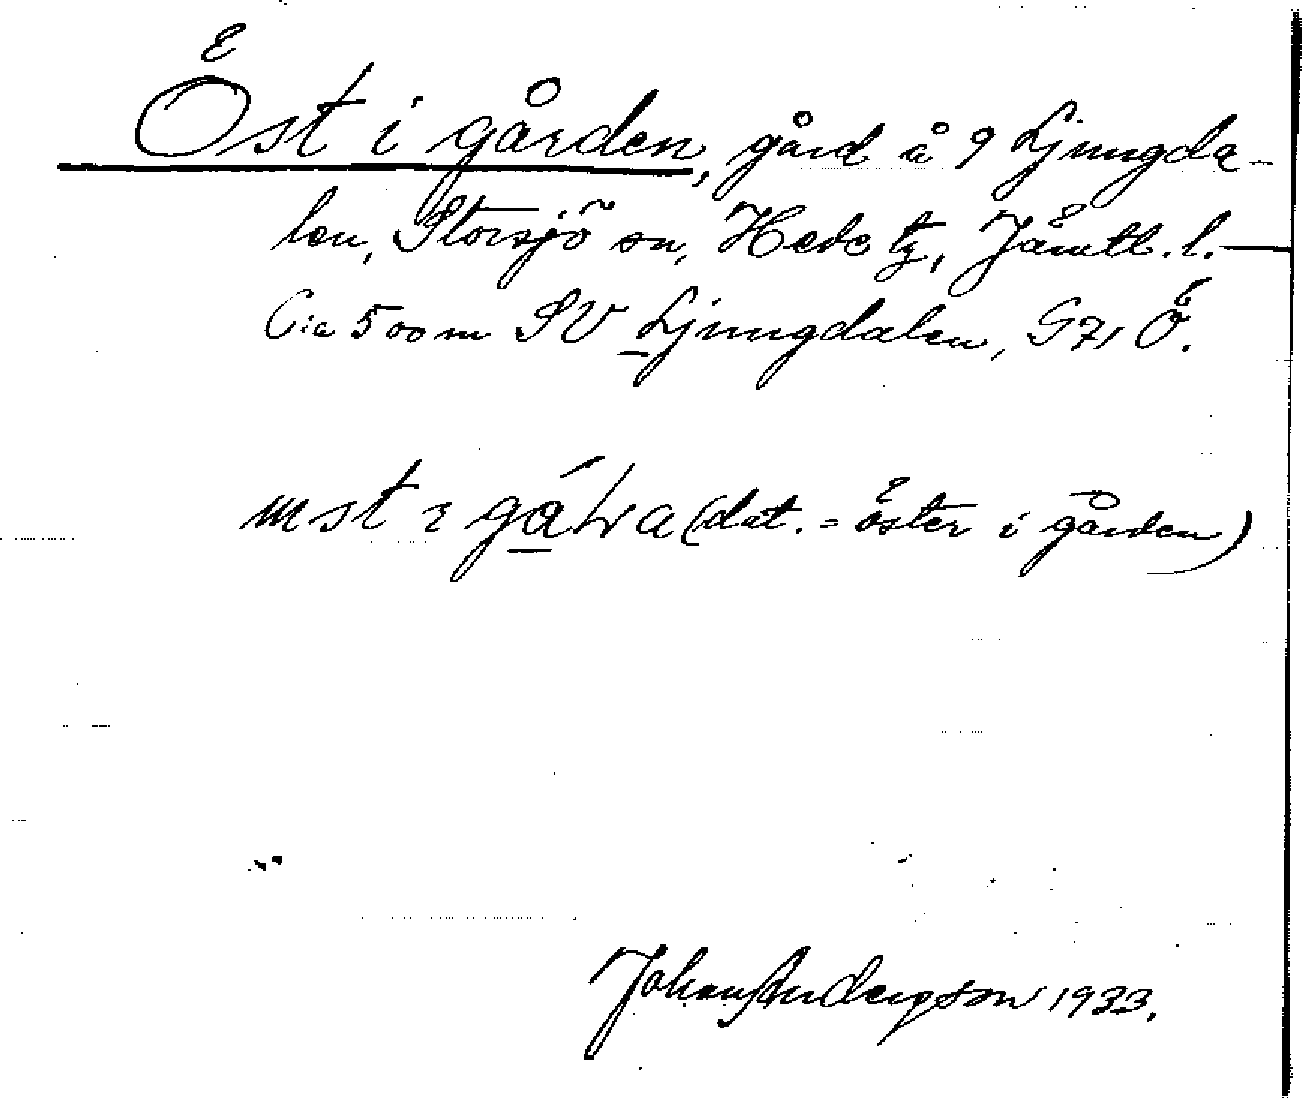 Öst i gården, gård å 9 Ljungda-
len, Storsjö sn, Hede tg, Jämtl. l.
C:a 500 m SV Ljungdalen, G71 Ö.
(dat. = öster i gården)
Johan Anderson 1933.